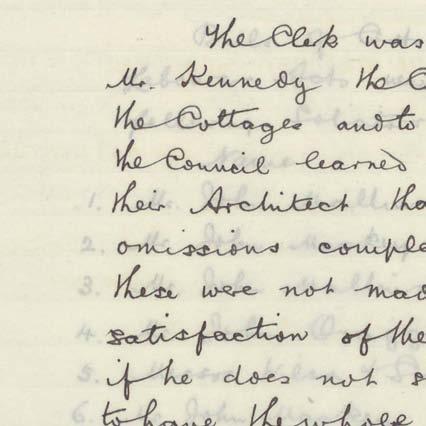 The Clerk was
Mr. Kennedy the C
the Cottages and to
the Council learned
their Architect tha
omissions comple
these were not mad
satisfaction of the
if he does not s
to have the whole